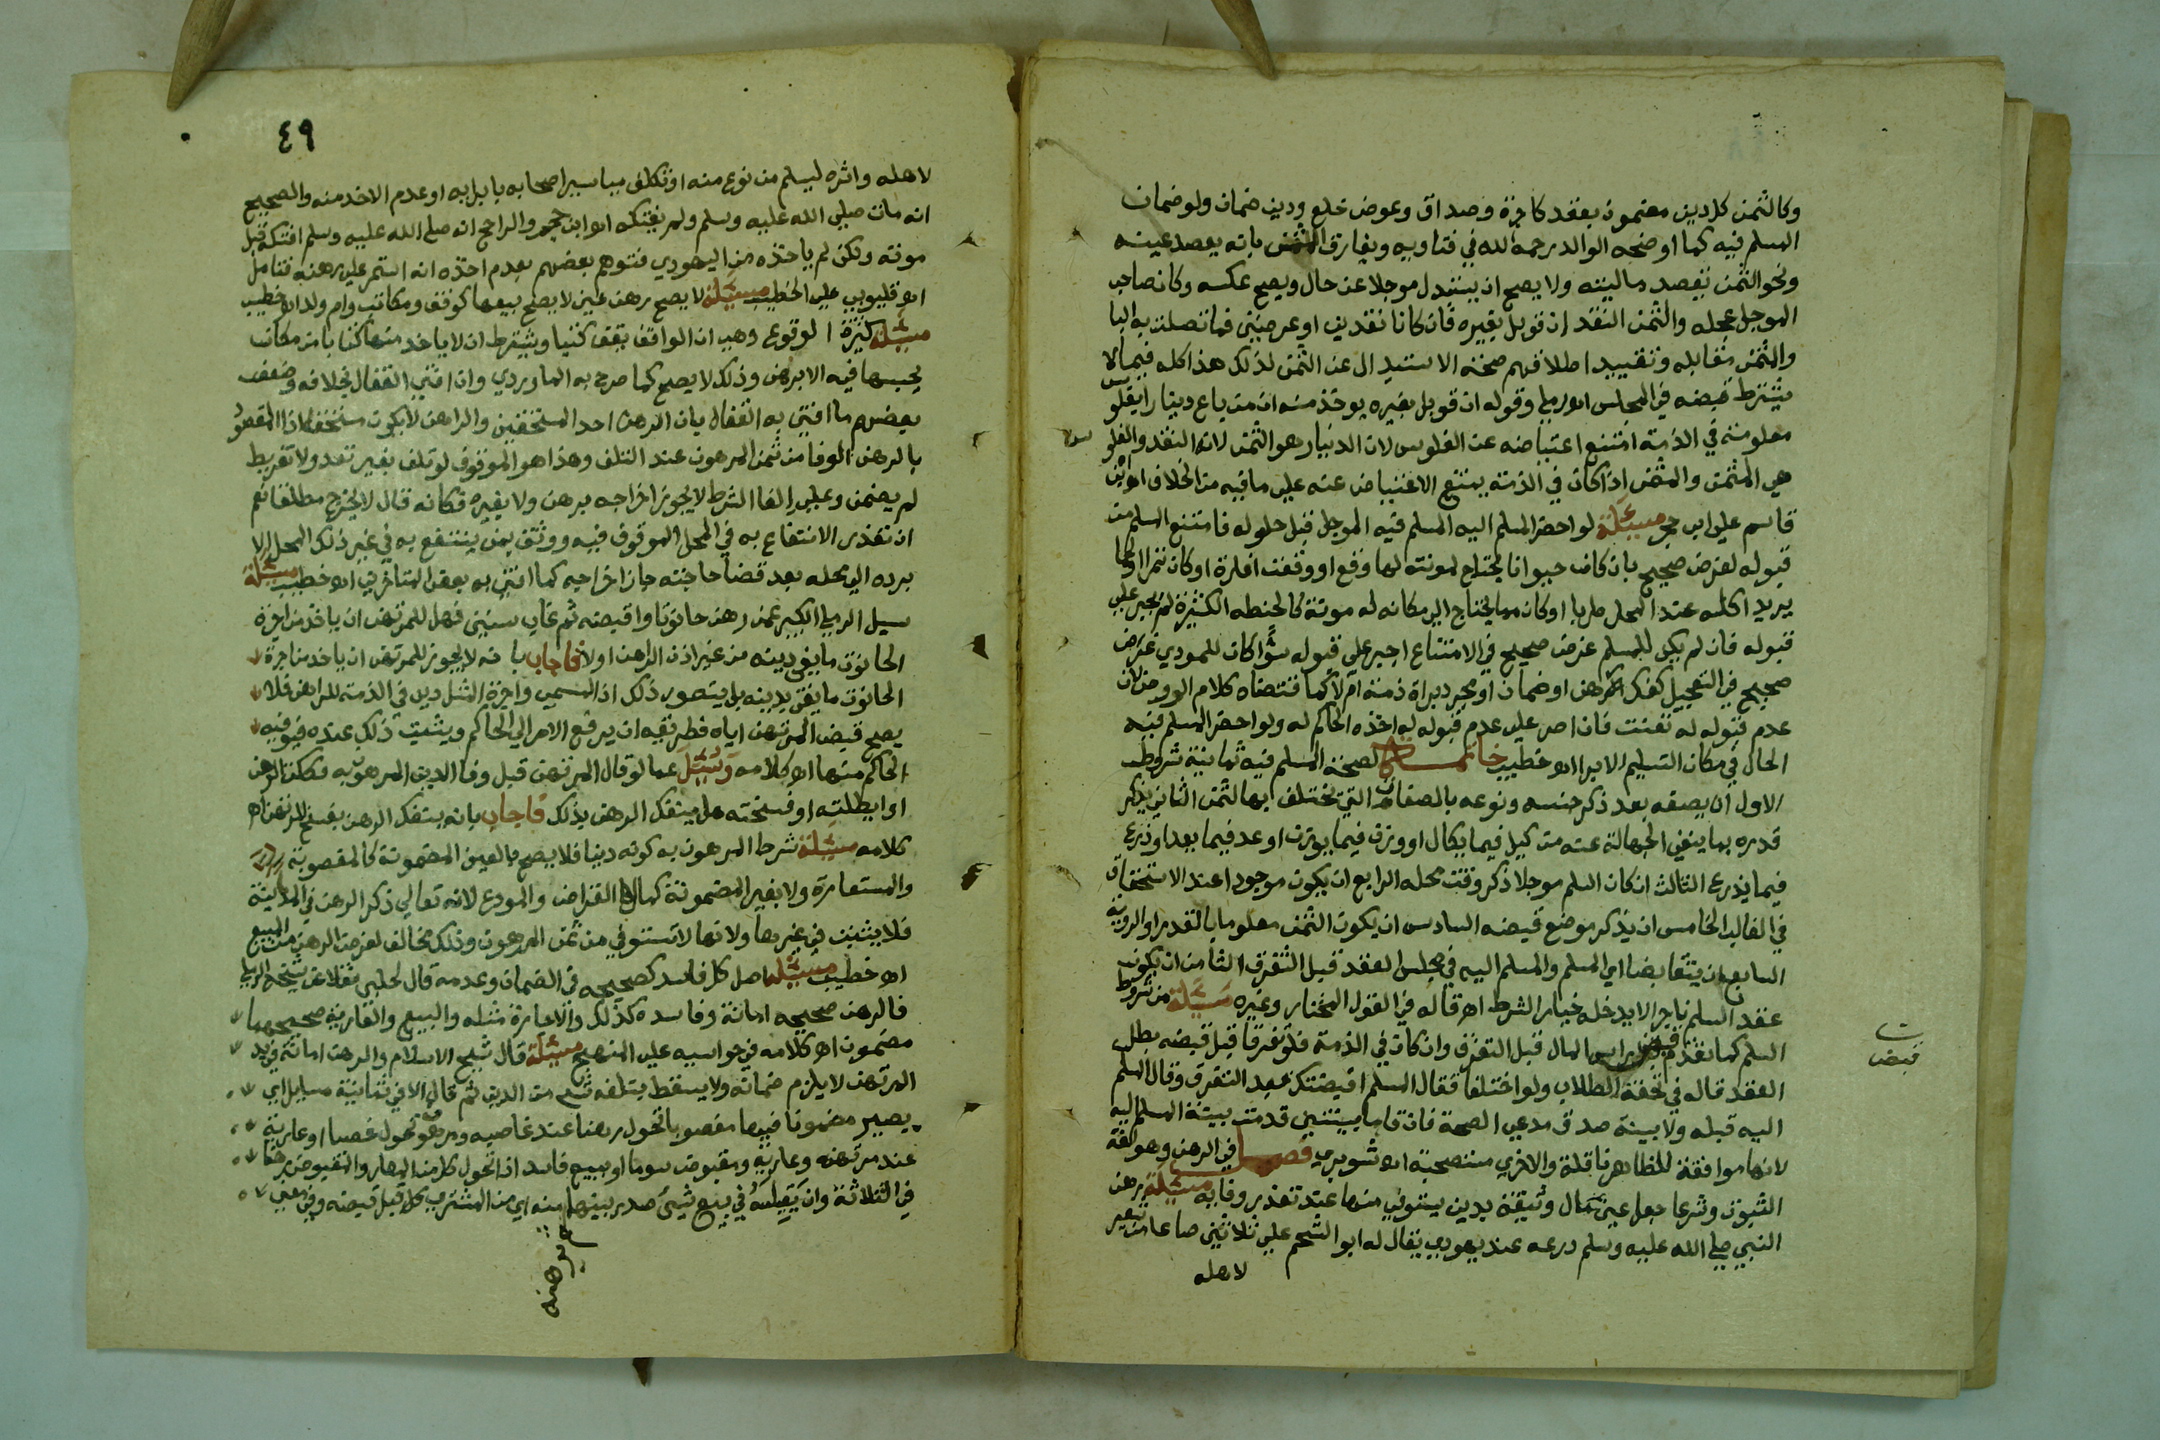 وكالثمن كل دين مضمون بعقد كاجرة وصداق وعوض خلع ودين ضمان ولو ضمان
المسلم فيه كما اوضحه الوالد رحمه الله في فتاويه ويفارق المثمن بانه يقصد عينه
ونحو الثمن يقصد ماليته ولا يصح ان يستبدل موجلا عن حال ويصح عكسه وكان صاحب
الموجل عجله والثمن النقد ان قوبل بغيره فان كانا نقدين او عرضين فما تصلت به البا
والمثمن مقابله وتقييد اطلاقهم صحة الاستبدال عن الثمن لذلك هذا كله فيما لا
يشترط قبضه في المجلس اه رملي وقوله ان قوبل بغيره يوخذ منه ان من باع دينارا بفلو
معلومة في الذمة امتنع اعتياضه عن الفلوس لان الدينار هو الثمن لانه النقد والفلو
هي المثمن والمثمن اذا كان في الذمة يمتنع الاعتياض عنه على ما فيه من الخلاف اه ابن
قاسم على ابن حجر مسئلة لو احضر المسلم اليه المسلم فيه الموجل قبل حلوله فامتنع المسلم من
قبوله لغرض صحيح بان كان حيوانا يحتاج لمونة لها وقع او وقت اغارة او كان ثمرا او لحما
يريد اكله عند المحل طريا او كان مما يحتاج الى مكان له مونة كالحنطة الكثيرة لم يجبر على
قبوله فان لم يكن للمسلم غرض صحيح في الامتناع اجبر على قبوله سوا كان للمودي غرض
صحيح في التعجيل كفك رهن او ضمان او مجرد براة ذمته ام لا كما اقتضاه كلام الروض لان
عدم قبوله له تعنت فان اصر على عدم قبوله له اخذه الحاكم له ولو احضر المسلم فيه
الحال في مكان التسليم لابرا اه خطيب خاتمة لصحة المسلم فيه ثمانية شروط
الاول ان يصفه بعد ذكر جنسه ونوعه بالصفات التي تختلف بها الثمن الثاني يذكر
قدره بما ينفي الجهالة عنه من كيل فيما يكال او وزن فيما يوزن او عد فيما يعد او ذرع
فيما يذرع الثالث ان كان السلم موجلا ذكر وقت محله الرابع ان يكون موجودا عند الاستحقاق
في الغالب الخامس ان يذكر موضع قبضه السادس ان يكون الثمن معلوما بالقدر او الروية
السابع ان يتقابضا اي المسلم والمسلم اليه في مجلس العقد قبل التفرق الثامن ان يكون
عقد السلم ناجزا لا يدخله خيار الشرط اه قاله في القول المختار وغيره مسئلة من شروط
السلم كما تقدم قبض راس المال قبل التفرق وان كان في الذمة فلو تفرقا قبل قبضه بطل
العقد قاله في تحفة الطلاب ولو اختلفا فقال المسلم اقبضتك بعد التفرق وقال المسلم
اليه قبله ولا بينة صدق مدعي الصحة فان قاما ببينتين قدمت بينة المسلم اليه
لانها موافقة للظاهر ناقلة والاخرى مستصحبة اه شوبري فصل في الرهن وهو لغة
الثبوت وشرعا جعل عين مال وثيقة بدين يستوفي منها عند تعذر وفايه مسئلة رهن
النبي صلى الله عليه وسلم درعه عند يهودي يقال له ابو الشحم على ثلاثين صاعا من شعير
لاهله
قبض
٤٩
لاهله واثره ليسلم من نوع منه او تكلف مياسير اصحابه بابرايه او عدم الاخذ منه والصحيح
انه مات صلى الله عليه وسلم ولم يفتكه اه ابن حجر والراجح انه صلى الله عليه وسلم افتكه قبل
موته ولكن لم ياخذه من اليهودي فتوهم بعضهم بعدم اخذه انه استمر على رهنه فتامل
اه قليوبي على الخطيب مسئلة لا يصح رهن عين لا يصح بيعها كوقف ومكاتب وام ولد اه خطيب
مسئلة كثيرة الوقوع وهي ان الواقف يقف كتبا ويشترط ان لا ياخذ منها كتابا من مكان
يحبسها فيه الا برهن وذلك لا يصح كما صرح به الماوردي وان افتى القفال بخلافه وضعف
بعضهم ما افتى به القفال بان الرهن احد المستحقين والراهن لا يكون مستحقا اذ المقصود
بالرهن الوفا من ثمن المرهون عند التلف وهذا هو الموقوف لو تلف بغير تعد ولا تفريط
لم يضمن وعلى الغا الشرط لا يجوز اخراجه برهن ولا بغيره فكانه قال لا يخرج مطلقا نعم
ان تعذر الانتفاع به في المحل الموقوف فيه ووثق بمن ينتفع به في غير ذلك المحل ان
يرده الى محله بعد قضا حاجته جاز اخراجه كما افتى به بعض المتاخرين اه خطيب مسئلة
سيل الرملي الكبير عمن رهن حانوتا واقبضه ثم غاب سنين فهل للمرتهن ان ياخذ من اجرة
الحانوت ما يفي بدينه من غير اذن الراهن او لا فاجاب بانه لا يجوز للمرتهن ان ياخذ من اجرة
الحانوت ما يفي بدينه بل يتصور ذلك اذ المسمى واجرة المثل دين في الذمة للراهن فلا
يصح قبض المرتهن اياه فطريقه ان يرفع الامر الى الحاكم ويثبت ذلك عنده فيوفيه
الحاكم منها اه كلامه وسئل عما لو قال المرتهن قبل وفا الدين المرهون به فككت الرهن
او ابطلته او فسخته هل ينفك الرهن بذلك فاجاب بانه ينفك الرهن بفسخ المرتهن اه
كلامه مسئلة شرط المرهون به كونه دينا فلا يصح بالعين المضمونة كالمغصوبة
والمستعارة ولا بغير المضمونة كمال القراض والمودع لانه تعالى ذكر الرهن في المداينة
فلا يثبت في غيرها ولانها لا تستوفي من ثمن المرهون وذلك مخالف لغرض الرهن من البيع
اه خطيب مسئلة اصل كل فاسد كصحيحه في الضمان وعدمه قال الحلبي نقلا عن شيخه الرملي
فالرهن صحيحه امانة وفاسده كذلك والاعارة مثله والبيع والعارية صحيحهما
مضمون اه كلامه في حواشيه على المنهج مسئلة قال شيخ الاسلام والرهن امانة في يد
المرتهن لا يلزم ضمانه ولا يسقط بتلفه شي من الدين ثم قال الا في ثمانية مسايل اي
يصير مضمونا فيها مغصوب تحول رهنا عند غاصبه ومرهون تحول غصبا او عارية
عند مرتهنه وعارية ومقبوض سوما او ببيع فاسد اذا تحول كل من المعار والمقبوض رهنا
في الثلاثة وان يقيله في بيع شي صدر بينهما منه اي من المشتري كل قبل قبضه وفي معنى